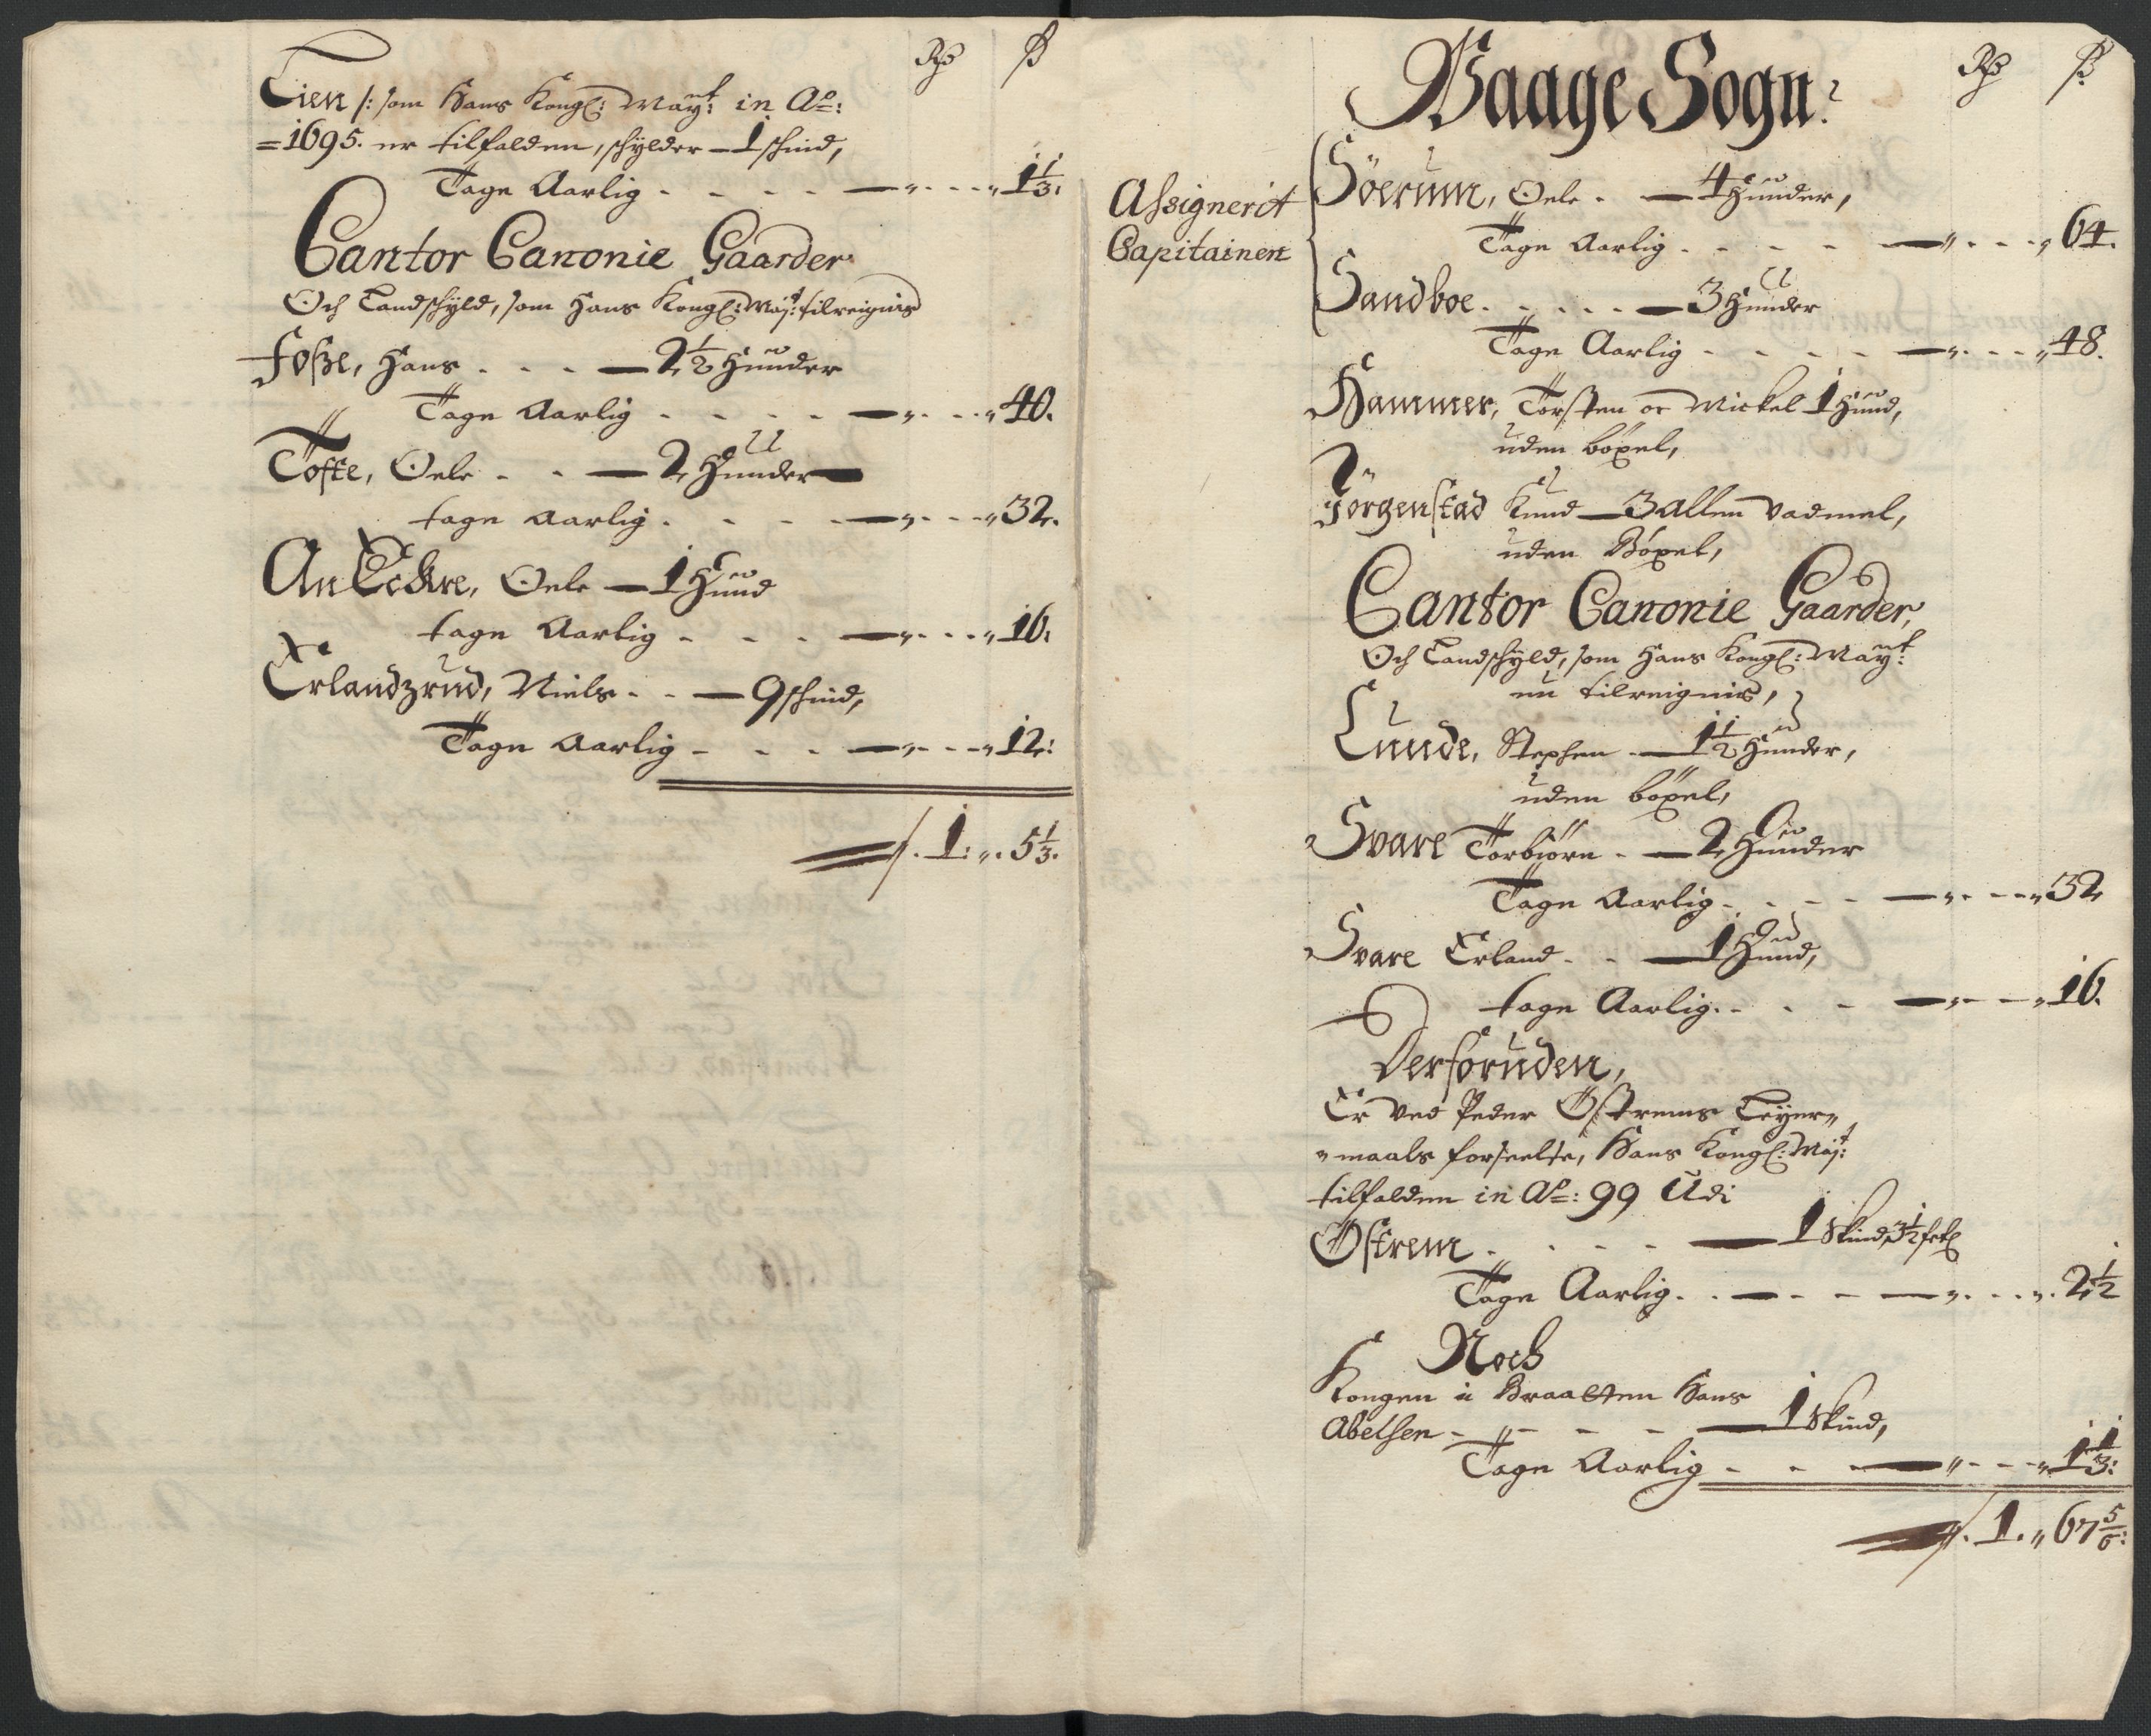 Rdr ß
Tien /: som Hans Kongl: Mayt: in Ao:
=1695. er tilfalden, schylder - 1 schind,
Tage Aarlig - - - - 1 1/3.
Cantor Canonie Gaarder
Och Landschyld, som Hans Kongl: Maj:t tilreignis
Foße, Hans . . . - 2 1/2 Hunder
Tage Aarlig - - - - 40.
Tofte, Oele - - - 2 Hunder
tage Aarlig . - - - 32.
An Eckre, Oele - 1 Hund
tage Aarlig - - - - 16.
Erlandzrud, Niels - - - 9 schind,
Tage Aarlig - - - - 12:
/. 1: „. 5 1/3.
Waage Sogn:
Rdr ß
Assignerit
Capitainen
Söerum, Oele - - 4 Hunder,
Tage Aarlig - - - - 64.
Sandboe . . . . - 3 Hunder
Tage Aarlig - - - - 48.
Hammer, Torsten oc Mickel 1 Hund,
uden böxel,
Jörgenstad Knud - 3 Allen Vadmel,
uden Böxel,
Cantor Canonie Gaarder,
Och Landschyld, som Hans Kongl: Mayt:
nu tilreignis,
Lunde, Stephen - - 1 1/2 Hunder,
uden böxel,
Svare Torbiörn - - 2 Hunder
Tage Aarlig - - - - 32
Svare Erland - - - 1 Hund,
tage Aarlig . - - - 16.
Derforuden,
Er ved Peder Östrems Leyer„
„maals forseelse, Hans Kongl: Maj:t
tilfalden in Ao: 99 Udi
Östrem . . . - 1 Skind, 3 1/2 sckl
Tage Aarlig . . - - - - 2 1/2
Noch
Kongen i Braaten Hans
Abelsen - - - - 1 Skind,
Tage Aarlig - - - - 1 1/3:
/. 1. „ 67 5/6: